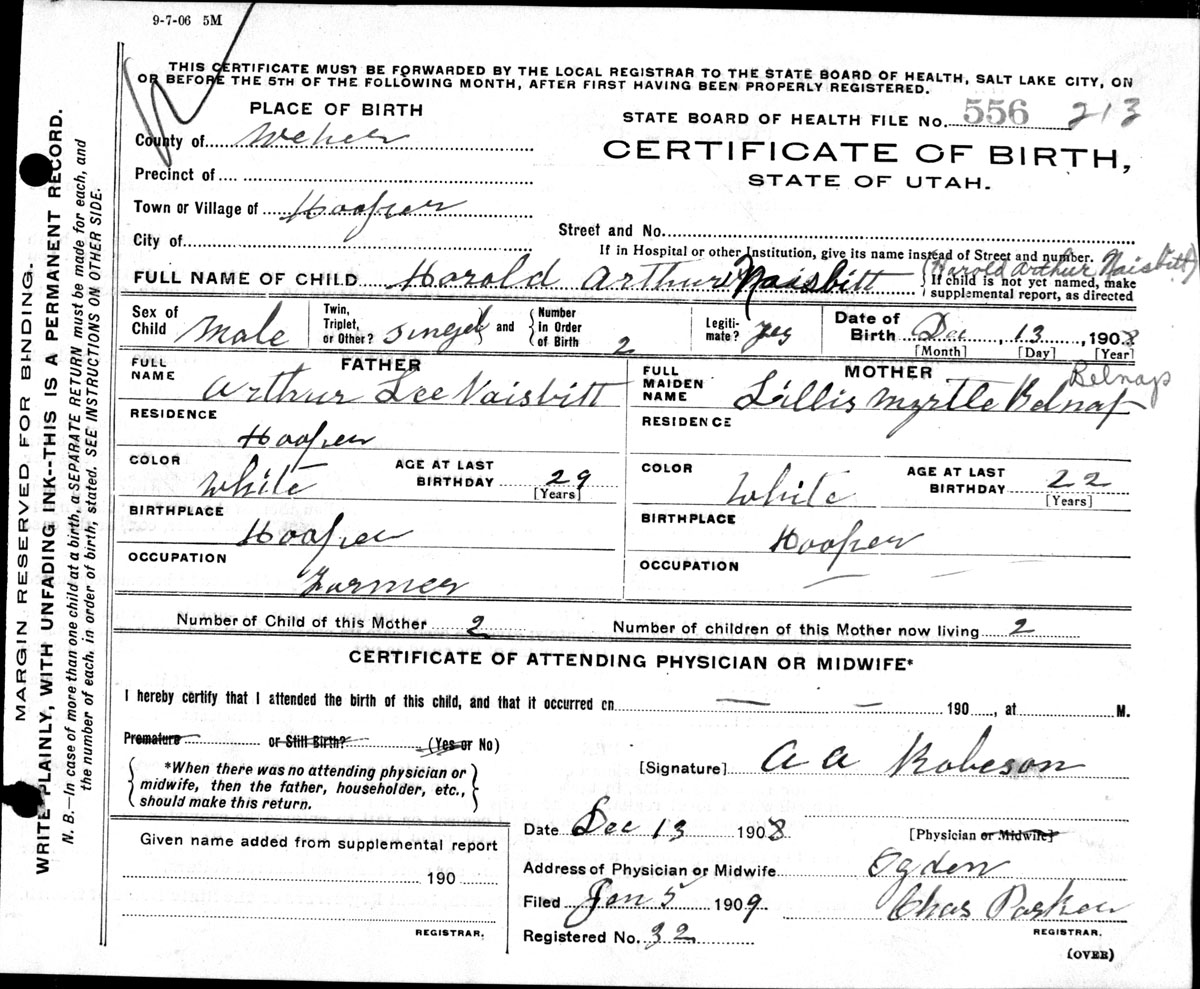 9-7-06 5M
THIS CERTIFICATE MUST BE FORWARDED BY THE LOCAL REGISTRAR TO THE STATE BOARD OF HEALTH, SALT LAKE CITY, ON
OR BEFORE THE 5TH OF THE FOLLOWING MONTH, AFTER FIRST HAVING BEEN PROPERLY REGISTERED.
PLACE OF BIRTH
STATE BOARD OF HEALTH FILE No. 556 213
County of Weber
CERTIFICATE OF BIRTH,
STATE OF UTAH.
Precinct of
Town or Village of Hooper
Street and No.
City of
If in Hospital or other Institution, give its name instead of Street and number.
FULL NAME OF CHILD Harold Arthur Naisbitt
(Harold Arthur Naisbitt)
If child is not yet named, make
supplemental report, as directed
Sex of Child Male
Twin, Triplet, or Other? singel and
Number in Order of Birth 2
Legiti-mate? yes
Date of Birth Dec, 13, 1908
[Month] [Day] [Year]
FATHER
FULL NAME Arthur Lee Naisbitt
MOTHER
FULL MAIDEN NAME Lillis Myrtle Belnap
Belnap
RESIDENCE Hooper
RESIDENCE
COLOR White AGE AT LAST BIRTHDAY 29 [Years]
COLOR White AGE AT LAST BIRTHDAY 22 [Years]
BIRTHPLACE Hooper
BIRTHPLACE Hooper
OCCUPATION Farmer
OCCUPATION
Number of Child of this Mother 2
Number of children of this Mother now living 2
CERTIFICATE OF ATTENDING PHYSICIAN OR MIDWIFE*
I hereby certify that I attended the birth of this child, and that it occurred on 190 , at M.
Premature or Still Birth? (Yes or No)
*When there was no attending physician or
midwife, then the father, householder, etc.,
should make this return.
[Signature] A A Robeson
Date Dec 13 1908 [Physician or Midwife]
Given name added from supplemental report
190
REGISTRAR.
Address of Physician or Midwife Ogden
Filed Jan 5 1909 Chas Parker
REGISTRAR.
Registered No. 32
(OVER)
MARGIN RESERVED FOR BINDING.
WRITE PLAINLY, WITH UNFADING INK--THIS IS A PERMANENT RECORD.
N. B.—In case of more than one child at a birth, a SEPARATE RETURN must be made for each, and
the number of each, in order of birth, stated. SEE INSTRUCTIONS ON OTHER SIDE.